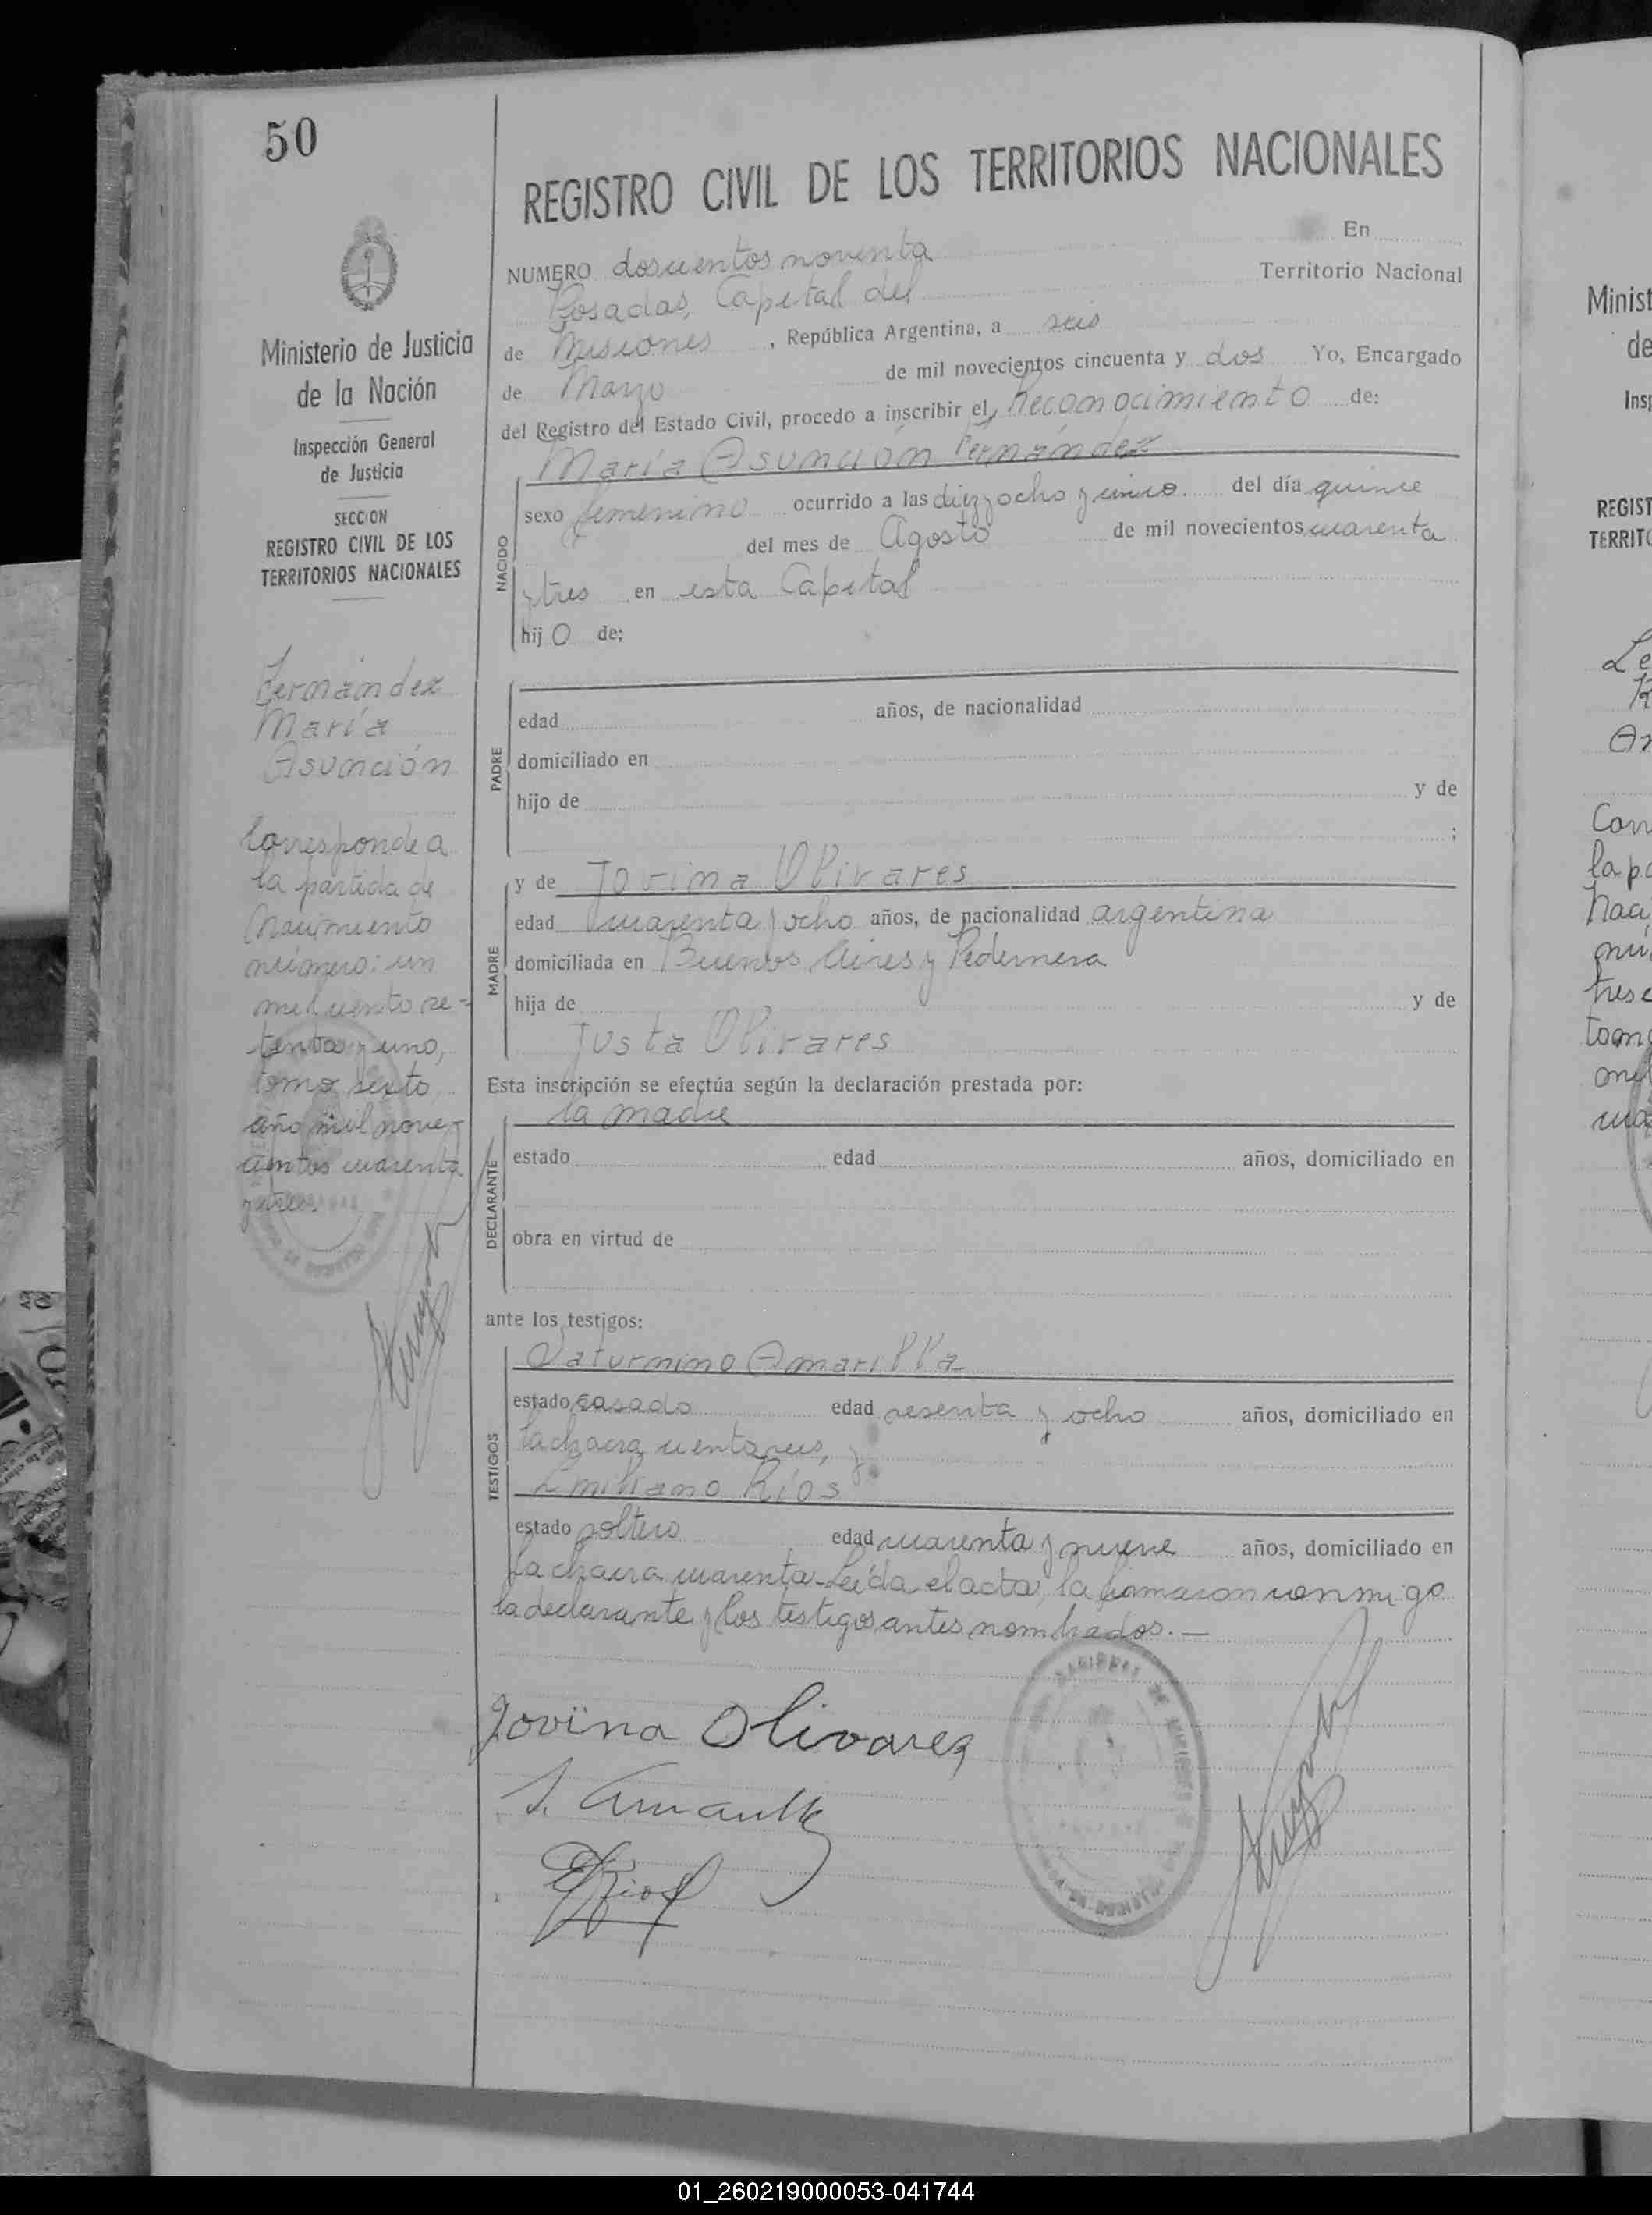 50
REGISTRO CIVIL DE LOS TERRITORIOS NACIONALES
NUMERO doscientos noventa En
Posadas, Capital del Territorio Nacional
de Misiones, República Argentina, a seis
de Marzo de mil novecientos cincuenta y dos Yo, Encargado
del Registro del Estado Civil, procedo a inscribir el Reconocimiento de:
María Asunción Fernández
NACIDO
sexo femenino ocurrido a las diez y ocho y cinco del día quince
del mes de Agosto de mil novecientos cuarenta
y tres en esta Capital
hijo de:
PADRE
edad años, de nacionalidad
domiciliado en
hijo de y de
;
MADRE
y de Jovina Olivares
edad cuarenta y ocho años, de nacionalidad argentina
domiciliada en Buenos Aires y Pedernera
hija de y de
Justa Olivares
Esta inscripción se efectúa según la declaración prestada por:
la madre
DECLARANTE
estado edad años, domiciliado en
obra en virtud de
ante los testigos:
TESTIGOS
Saturnino Amarilla
estado casado edad sesenta y ocho años, domiciliado en
la chacra ciento seis, y
Emiliano Ríos
estado soltero edad cuarenta y nueve años, domiciliado en
la chacra cuarenta. Leída el acta, la firmaron conmigo
la declarante y los testigos antes nombrados. —
Jovina Olivares
Ministerio de Justicia
de la Nación
Inspección General
de Justicia
SECCION
REGISTRO CIVIL DE LOS
TERRITORIOS NACIONALES
Fernández
María
Asunción
Corresponde a
la partida de
Nacimiento
número: un
mil ciento se-
tenta y uno,
tomo sexto
año mil nove-
cientos cuarenta
y tres.
Minist
de
Insp
REGIST
TERRITO
01_260219000053-041744